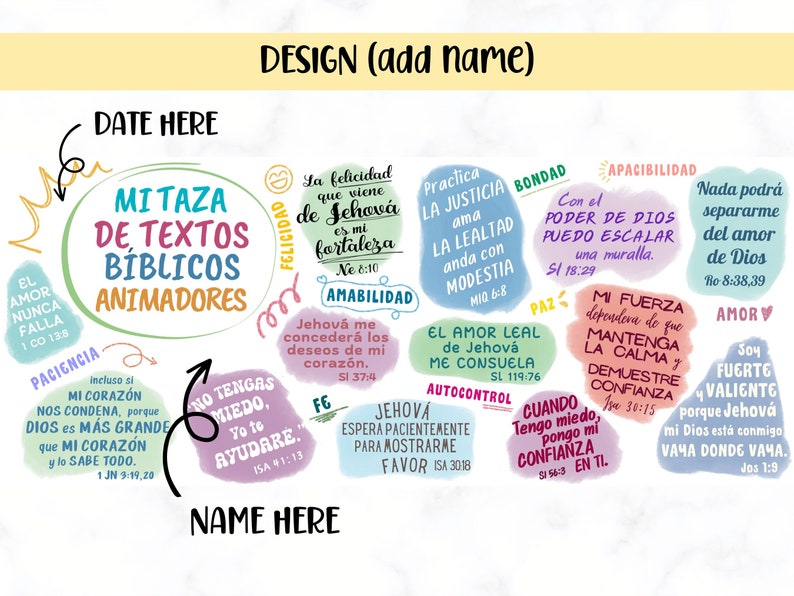 DESIGN (add name)
DATE HERE
MI TAZA
DE TEXTOS
BÍBLICOS
ANIMADORES
EL
AMOR
NUNCA
FALLA
1 CO 13:8
PACIENCIA
incluso si
MI CORAZÓN
NOS CONDENA, porque
DIOS es MÁS GRANDE
que MI CORAZÓN
y lo SABE TODO.
1 JN 3:19,20
"NO TENGAS
MIEDO,
Yo te
AYUDARÉ."
ISA 41:13
NAME HERE
FELICIDAD
La felicidad
que viene
de Jehová
es mi
fortaleza
Ne 8:10
AMABILIDAD
Jehová me
concederá los
deseos de mi
corazón.
Sl 37:4
FE
JEHOVÁ
ESPERA PACIENTEMENTE
PARA MOSTRARME
FAVOR ISA 30:18
Practica
LA JUSTICIA
ama
LA LEALTAD
anda con
MODESTIA
MIQ 6:8
BONDAD
EL AMOR LEAL
de Jehová
ME CONSUELA
SL 119:76
AUTOCONTROL
CUANDO
Tengo miedo,
pongo mi
CONFIANZA
EN TI.
Sl 56:3
APACIBILIDAD
Con el
PODER DE DIOS
PUEDO ESCALAR
una muralla.
Sl 18:29
PAZ
MI FUERZA
dependera de que
MANTENGA
LA CALMA y
DEMUESTRE
CONFIANZA
Isa 30:15
Nada podrá
separarme
del amor
de Dios
Ro 8:38,39
AMOR
Soy
FUERTE
y VALIENTE
porque Jehová
mi Dios está conmigo
VAYA DONDE VAYA.
Jos 1:9